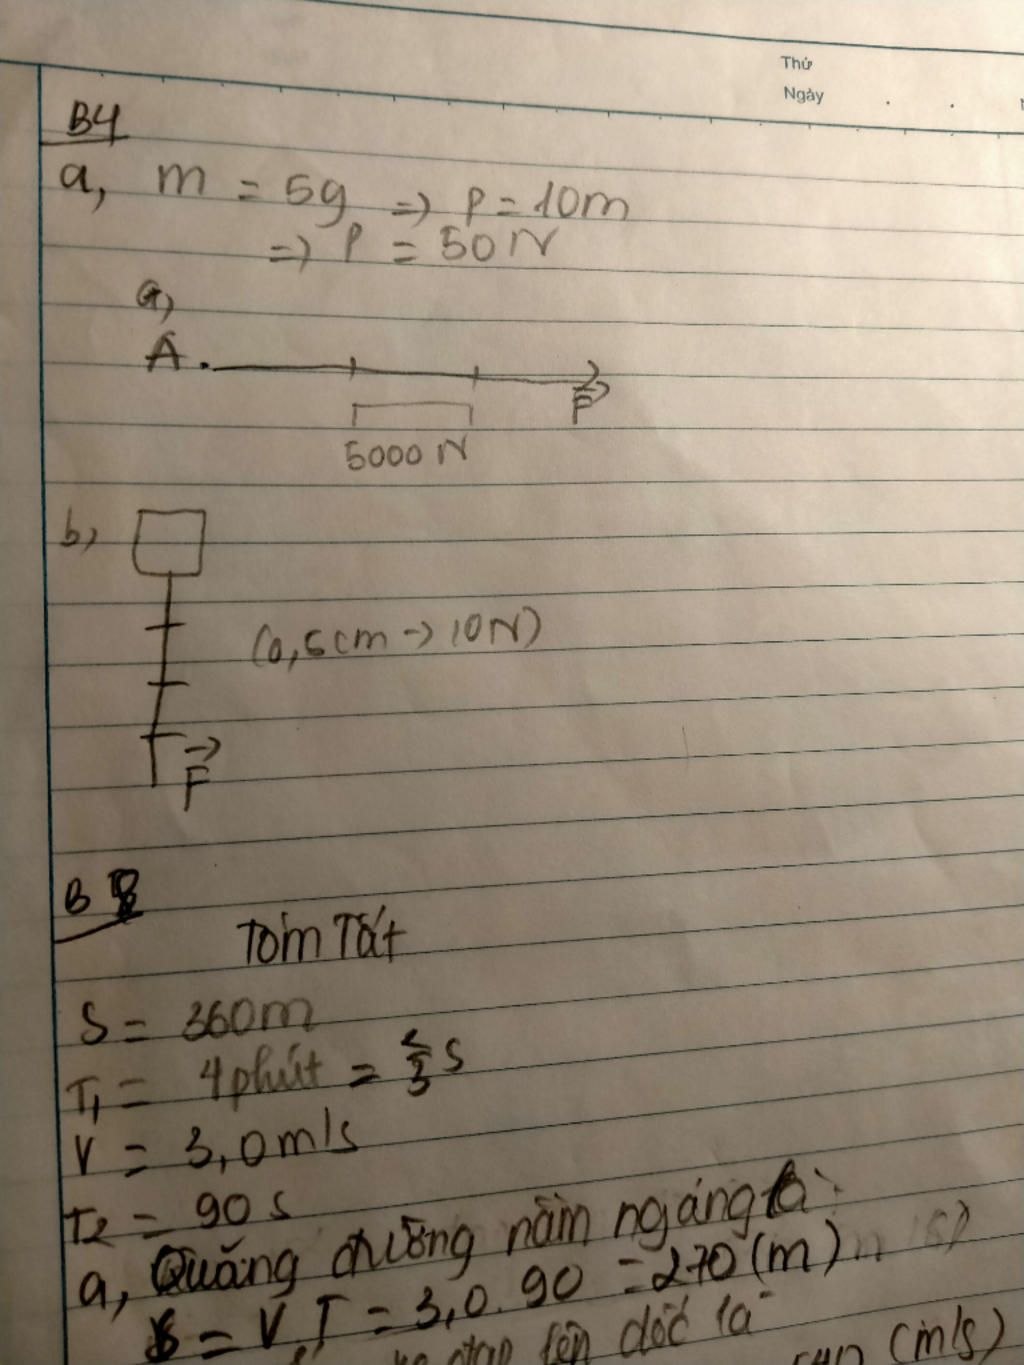 Thứ
Ngày
B4
a, m = 5g => P = 10m
=> P = 50N
a,
A.
F
5000 N
b,
(0,5cm -> 10N)
F
B
Tóm Tắt
S = 360m
T1 = 4 phút = s
V = 3,0m/s
T2 = 90 s
a, Quãng đường nằm ngang là:
S = V.T = 3,0.90 = 270 (m)
lên dốc là
(m/s)